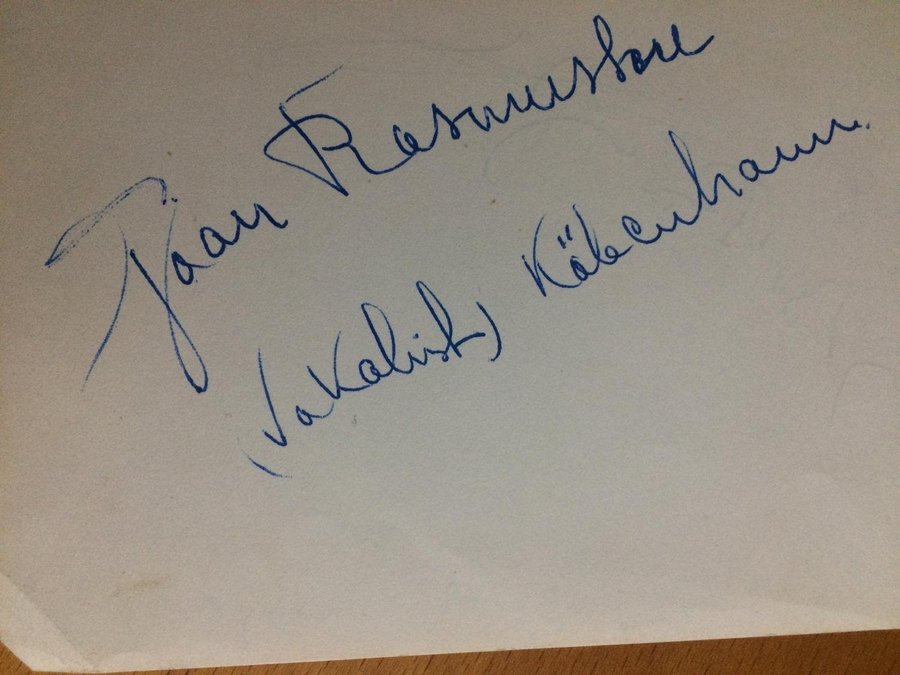 Rasmussen
(Vokalist) Köbenhavn.